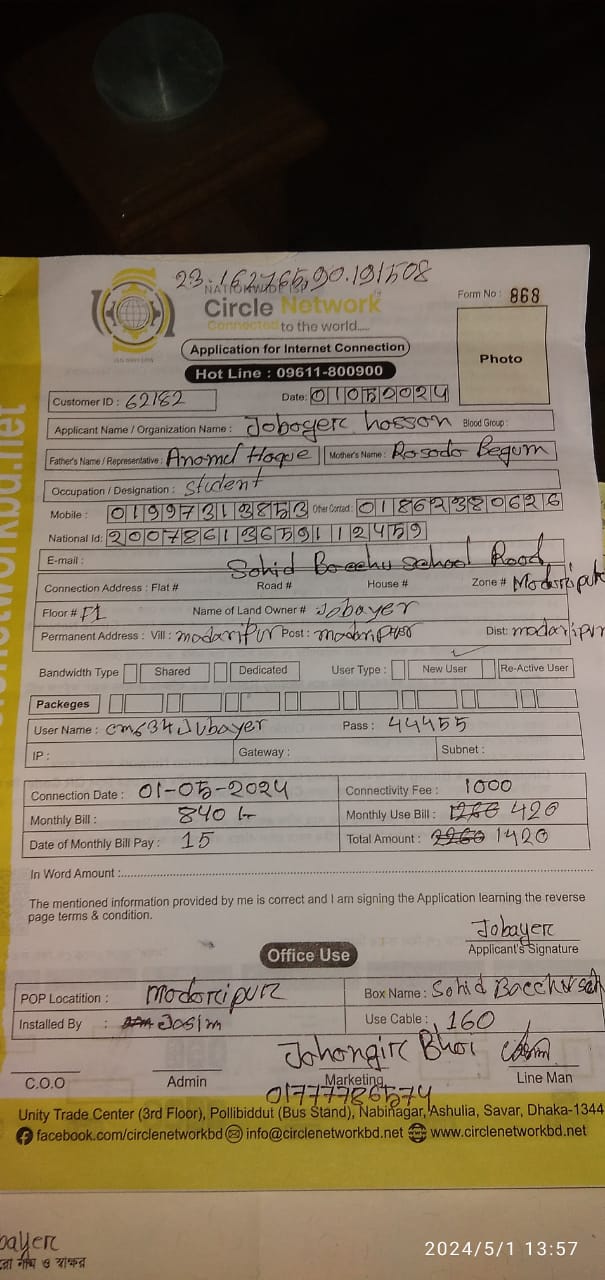 23.162765,90.191508
NATIONWIDE ISP
Circle Network
Connected to the world....
Form No : 868
Application for Internet Connection
Photo
Hot Line : 09611-800900
Customer ID : 62182 Date: 01052024
Applicant Name / Organization Name : Jobayerc hosson Blood Group :
Father's Name / Representative : Anomul Hoque Mother's Name : Rosado Begum
Occupation / Designation : Student
Mobile : 01997313853 Other Contact : 01862380626
National Id: 20078613659112459
E-mail :
Sohid Bacchu school Road
Connection Address : Flat # Road # House # Zone # Modarcipur
Floor # F1 Name of Land Owner # Jobayer
Permanent Address : Vill : madaripur Post : madaripur Dist: madaripur
Bandwidth Type Shared Dedicated User Type : New User Re-Active User
Packeges
User Name : cms34Jubayer Pass : 44455
IP : Gateway : Subnet :
Connection Date : 01-05-2024 Connectivity Fee : 1000
Monthly Bill : 840 Monthly Use Bill : 1260 420
Date of Monthly Bill Pay : 15 Total Amount : 2260 1420
In Word Amount :
The mentioned information provided by me is correct and I am signing the Application learning the reverse
page terms & condition.
Jobayerc
Applicant's Signature
Office Use
POP Locatition : Modarcipur Box Name : Sohid Bacchu sch
Installed By : Josim Use Cable : 160
Jahongirc Bhai
C.O.O Admin Marketing Line Man
01777786574
Unity Trade Center (3rd Floor), Pollibiddut (Bus Stand), Nabinagar, Ashulia, Savar, Dhaka-1344
facebook.com/circlenetworkbd info@circlenetworkbd.net www.circlenetworkbd.net
bayerc
নাম ও স্বাক্ষর
2024/5/1 13:57